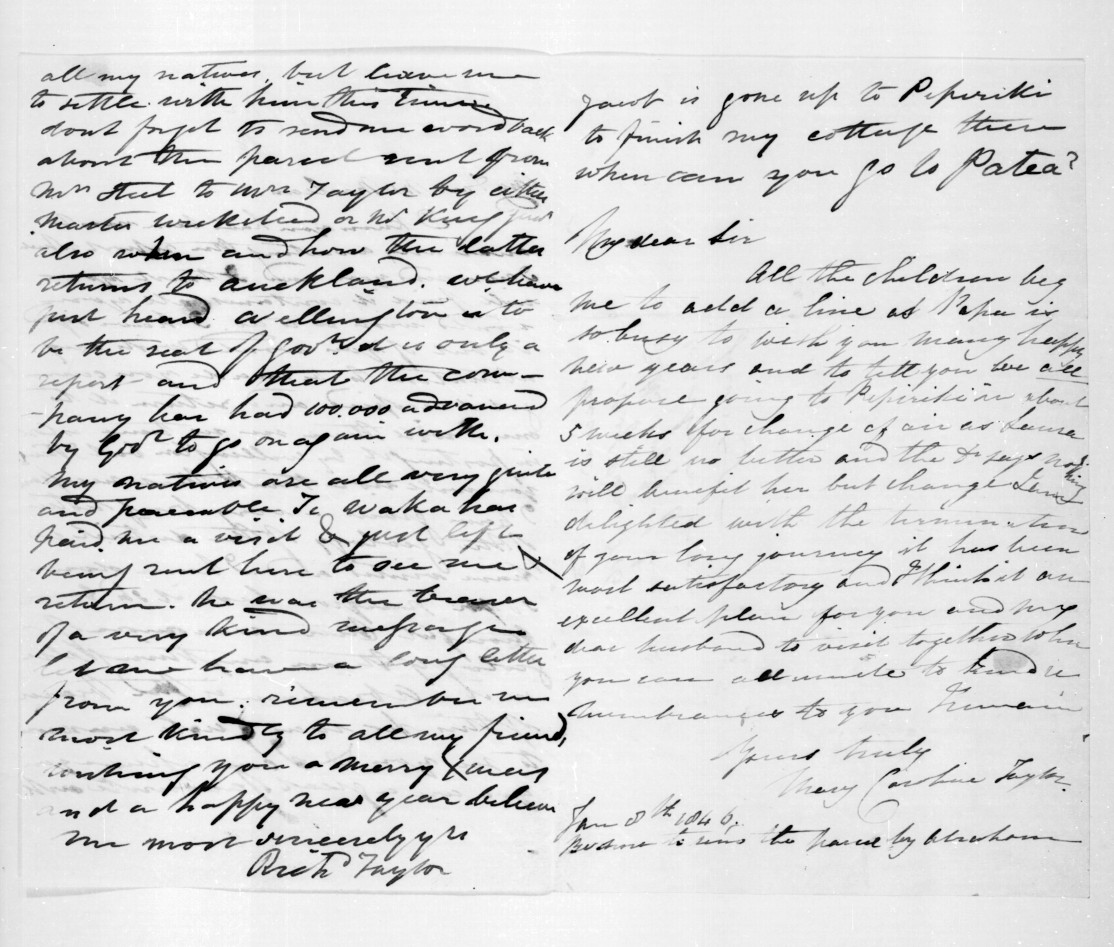 all my natives, but leave me
to settle with him this time
dont forget to send me word back
about the parcel sent from
Mrs Steel to Mrs Taylor by either
Master Wicksteed or Mr King
also when and how the latter
returns to Auckland. we have
just heard Wellington is to
be the seat of Govt. it is only a
report and that the com-
pany has had 100.000 advanced
by Govt to go on again with.
My natives are all very quiet
and peaceable Te Waka has
paid me a visit & just left
being sent here to see me
return. he was the bearer
of a very kind message
let me have a long letter
from you. remember me
most kindly to all my friends
wishing you a merry Xmas
and a happy new year believe
me most sincerely yrs
Richd Taylor
Jacob is gone up to Pipiriki
to finish my cottage there
when can you go to Patea?
My dear Sir
All the children beg
me to add a line as Papa is
so busy to wish you many happy
new years and to tell you we all
propose going to Pipiriki in about
5 weeks for change of air as Laura
is still no better and the Dr says nothing
will benefit her but change I am
delighted with the termination
of your long journey it has been
most satisfactory and I think it an
excellent plan for you and my
dear husband to visit together when
you can all unite to kind re
membrances to you I remain
Yours truly
Mary Caroline Taylor.
Jan 8th 1846.
to send the parcel by Abraham